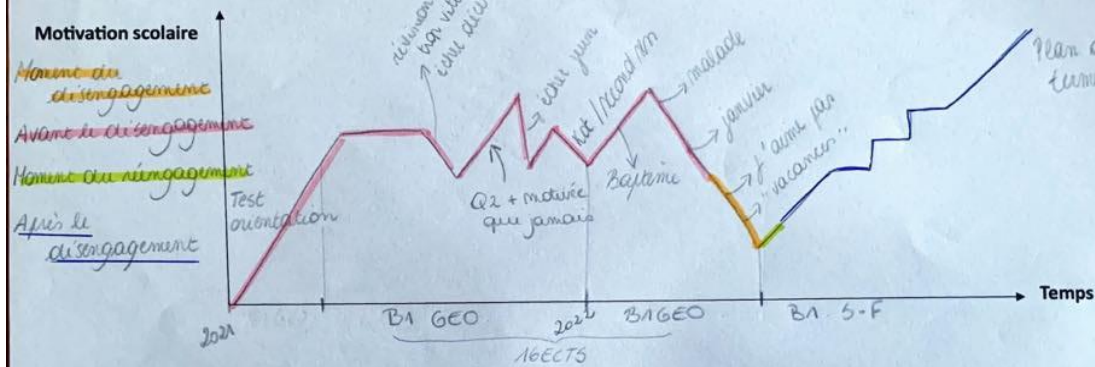 Motivation scolaire
Moment du
disengagement
Avant le disengagement
Moment du réengagement
Après le
disengagement
Test
orientation
révision
trop
échec
Q2 + motivée
que jamais
échec juin
Baptême
malade
janvier
j'aime pas
"vacances"
Plan
Temps
2021
B1 GEO
2022
B1GEO
B1. S-F
16ECTS